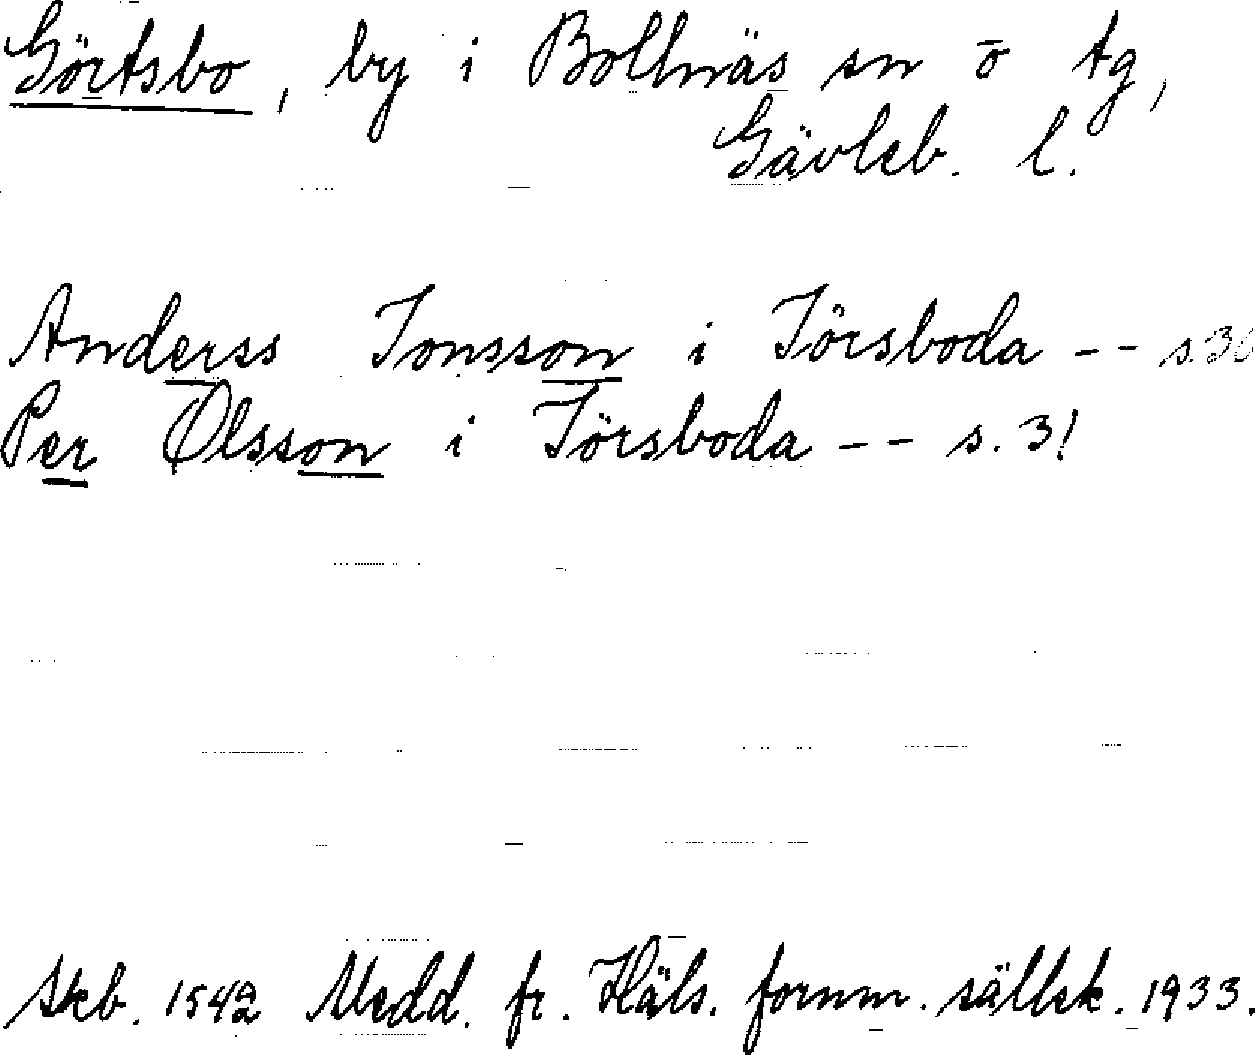 Görtsbo, by i Bollnäs sn o tg,
Gävleb. l.
Anderss Jonsson i Jörsboda -- s. 30
Per Olsson i Jörsboda -- s. 31
Skb. 1542 Medd. fr. Häls. fornm. sällsk. 1933.